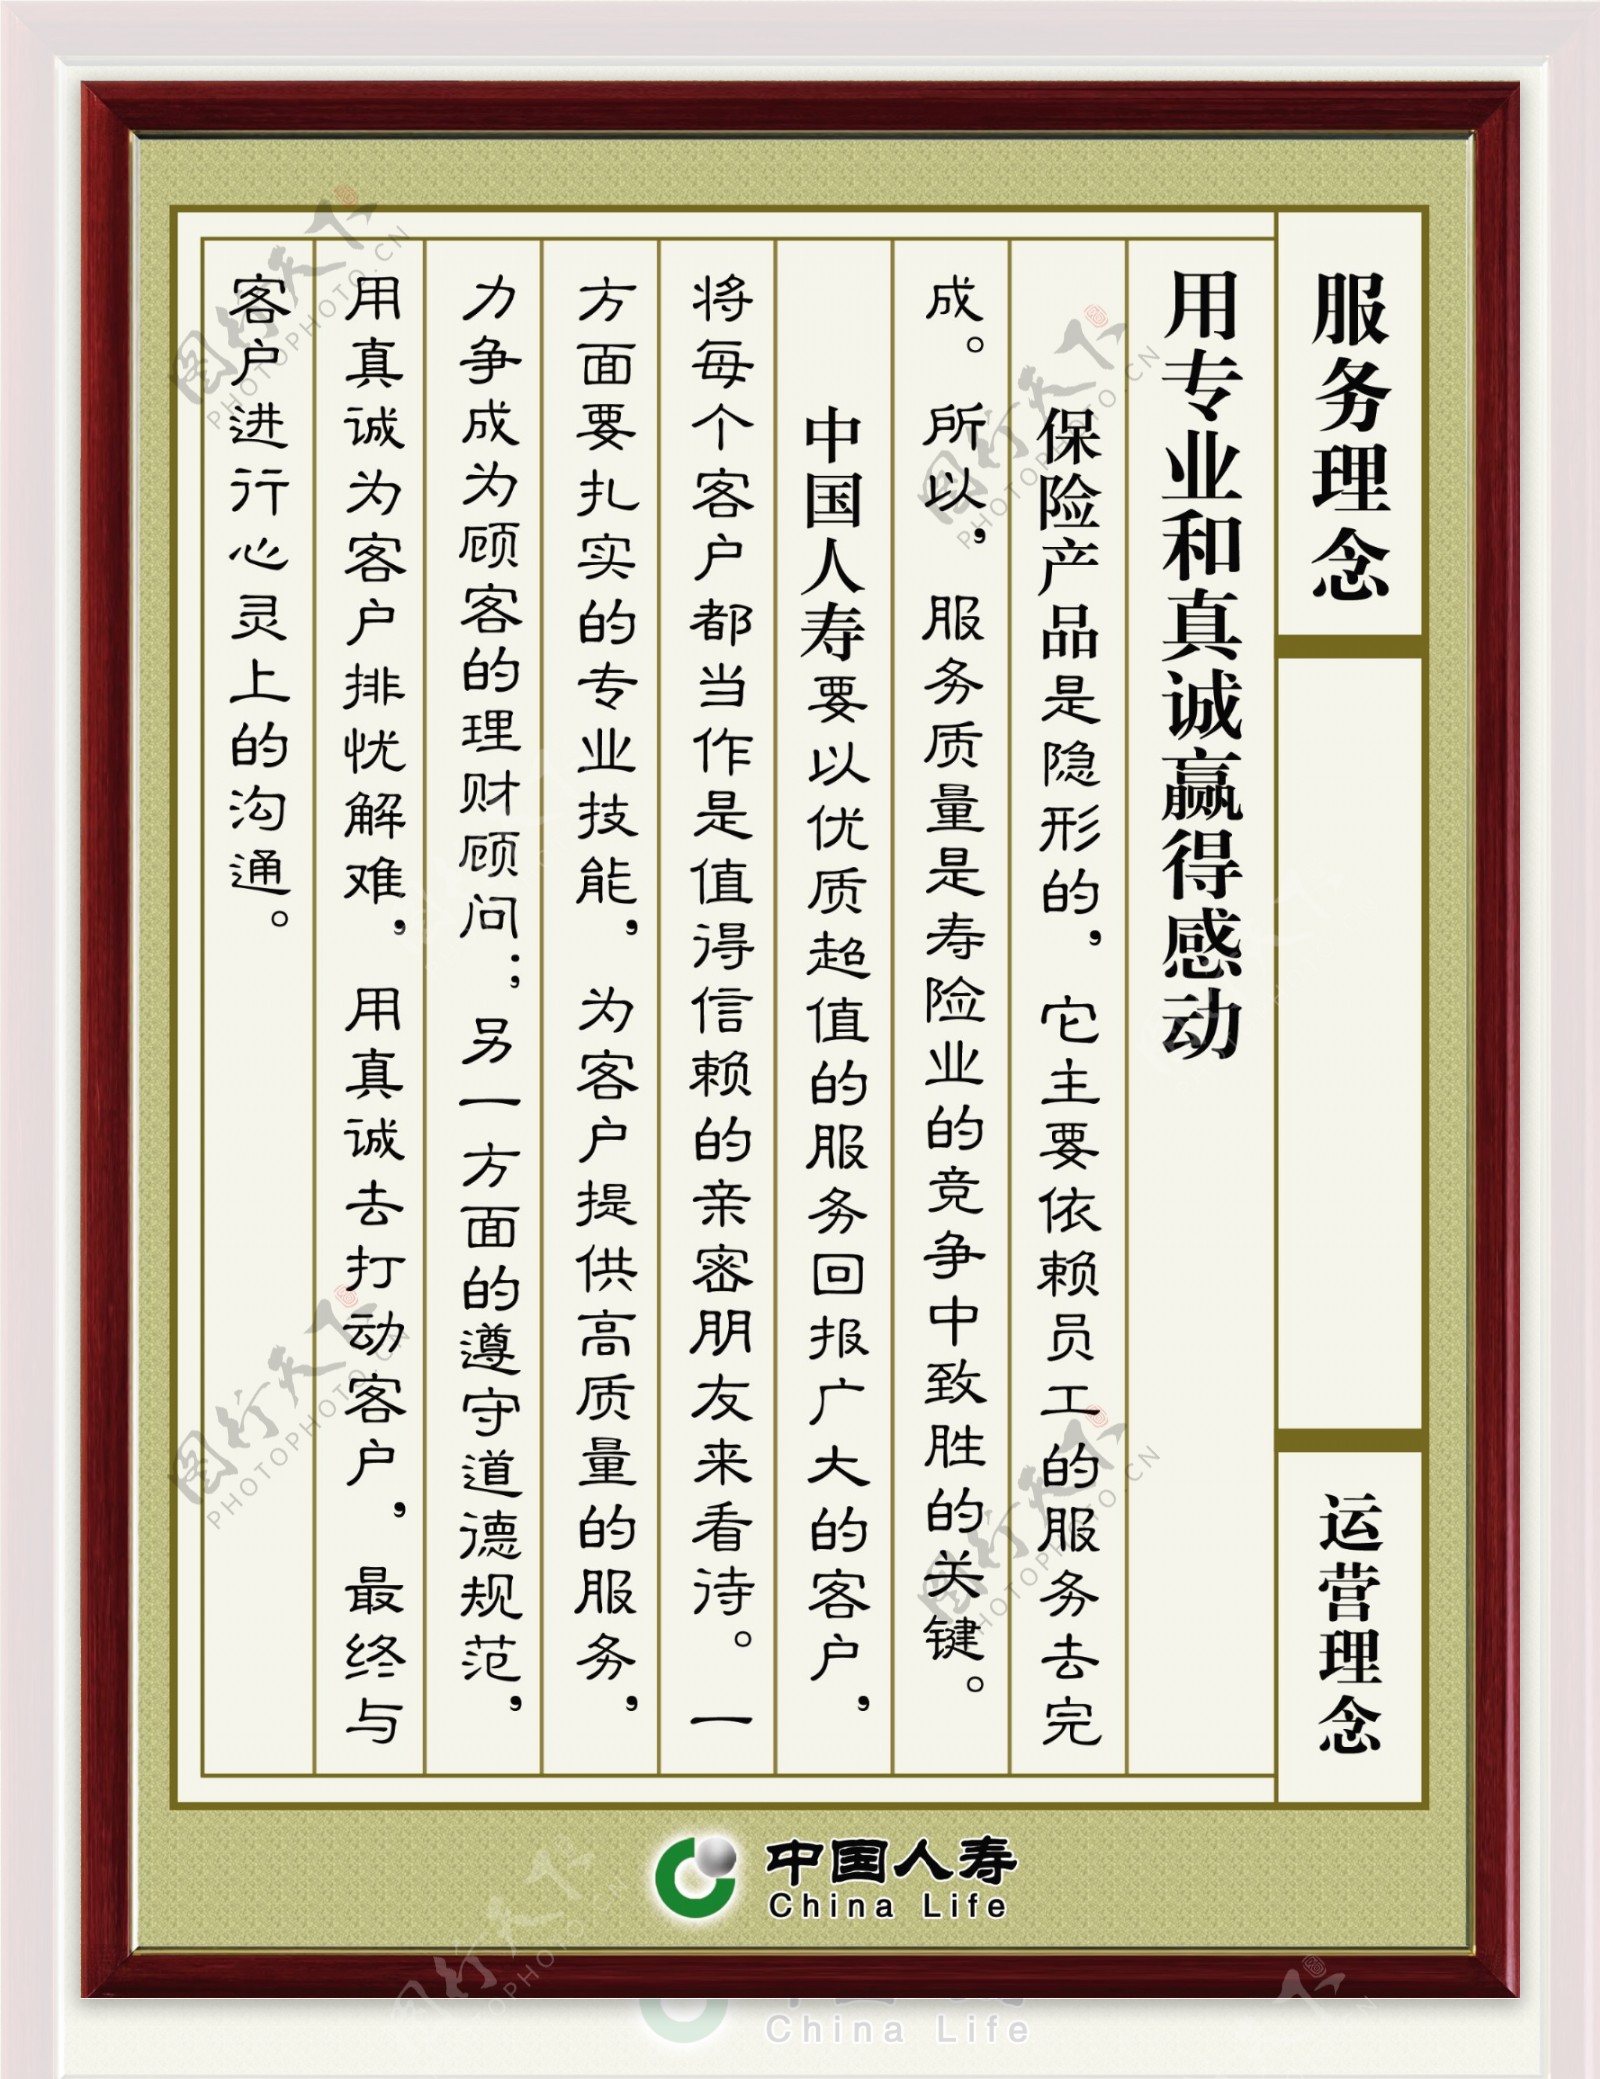 服务理念
运营理念
用专业和真诚赢得感动
保险产品是隐形的，它主要依赖员工的服务去完
成。所以，服务质量是寿险业的竞争中致胜的关键。
中国人寿要以优质超值的服务回报广大的客户，
将每个客户都当作是值得信赖的亲密朋友来看待。一
方面要扎实的专业技能，为客户提供高质量的服务，
力争成为顾客的理财顾问；另一方面的遵守道德规范，
用真诚为客户排忧解难，用真诚去打动客户，最终与
客户进行心灵上的沟通。
中国人寿
China Life
China Life
图行天下
PHOTOPHOTO.CN
图行天下
PHOTOPHOTO.CN
图行天下
PHOTOPHOTO.CN
图行天下
PHOTOPHOTO.CN